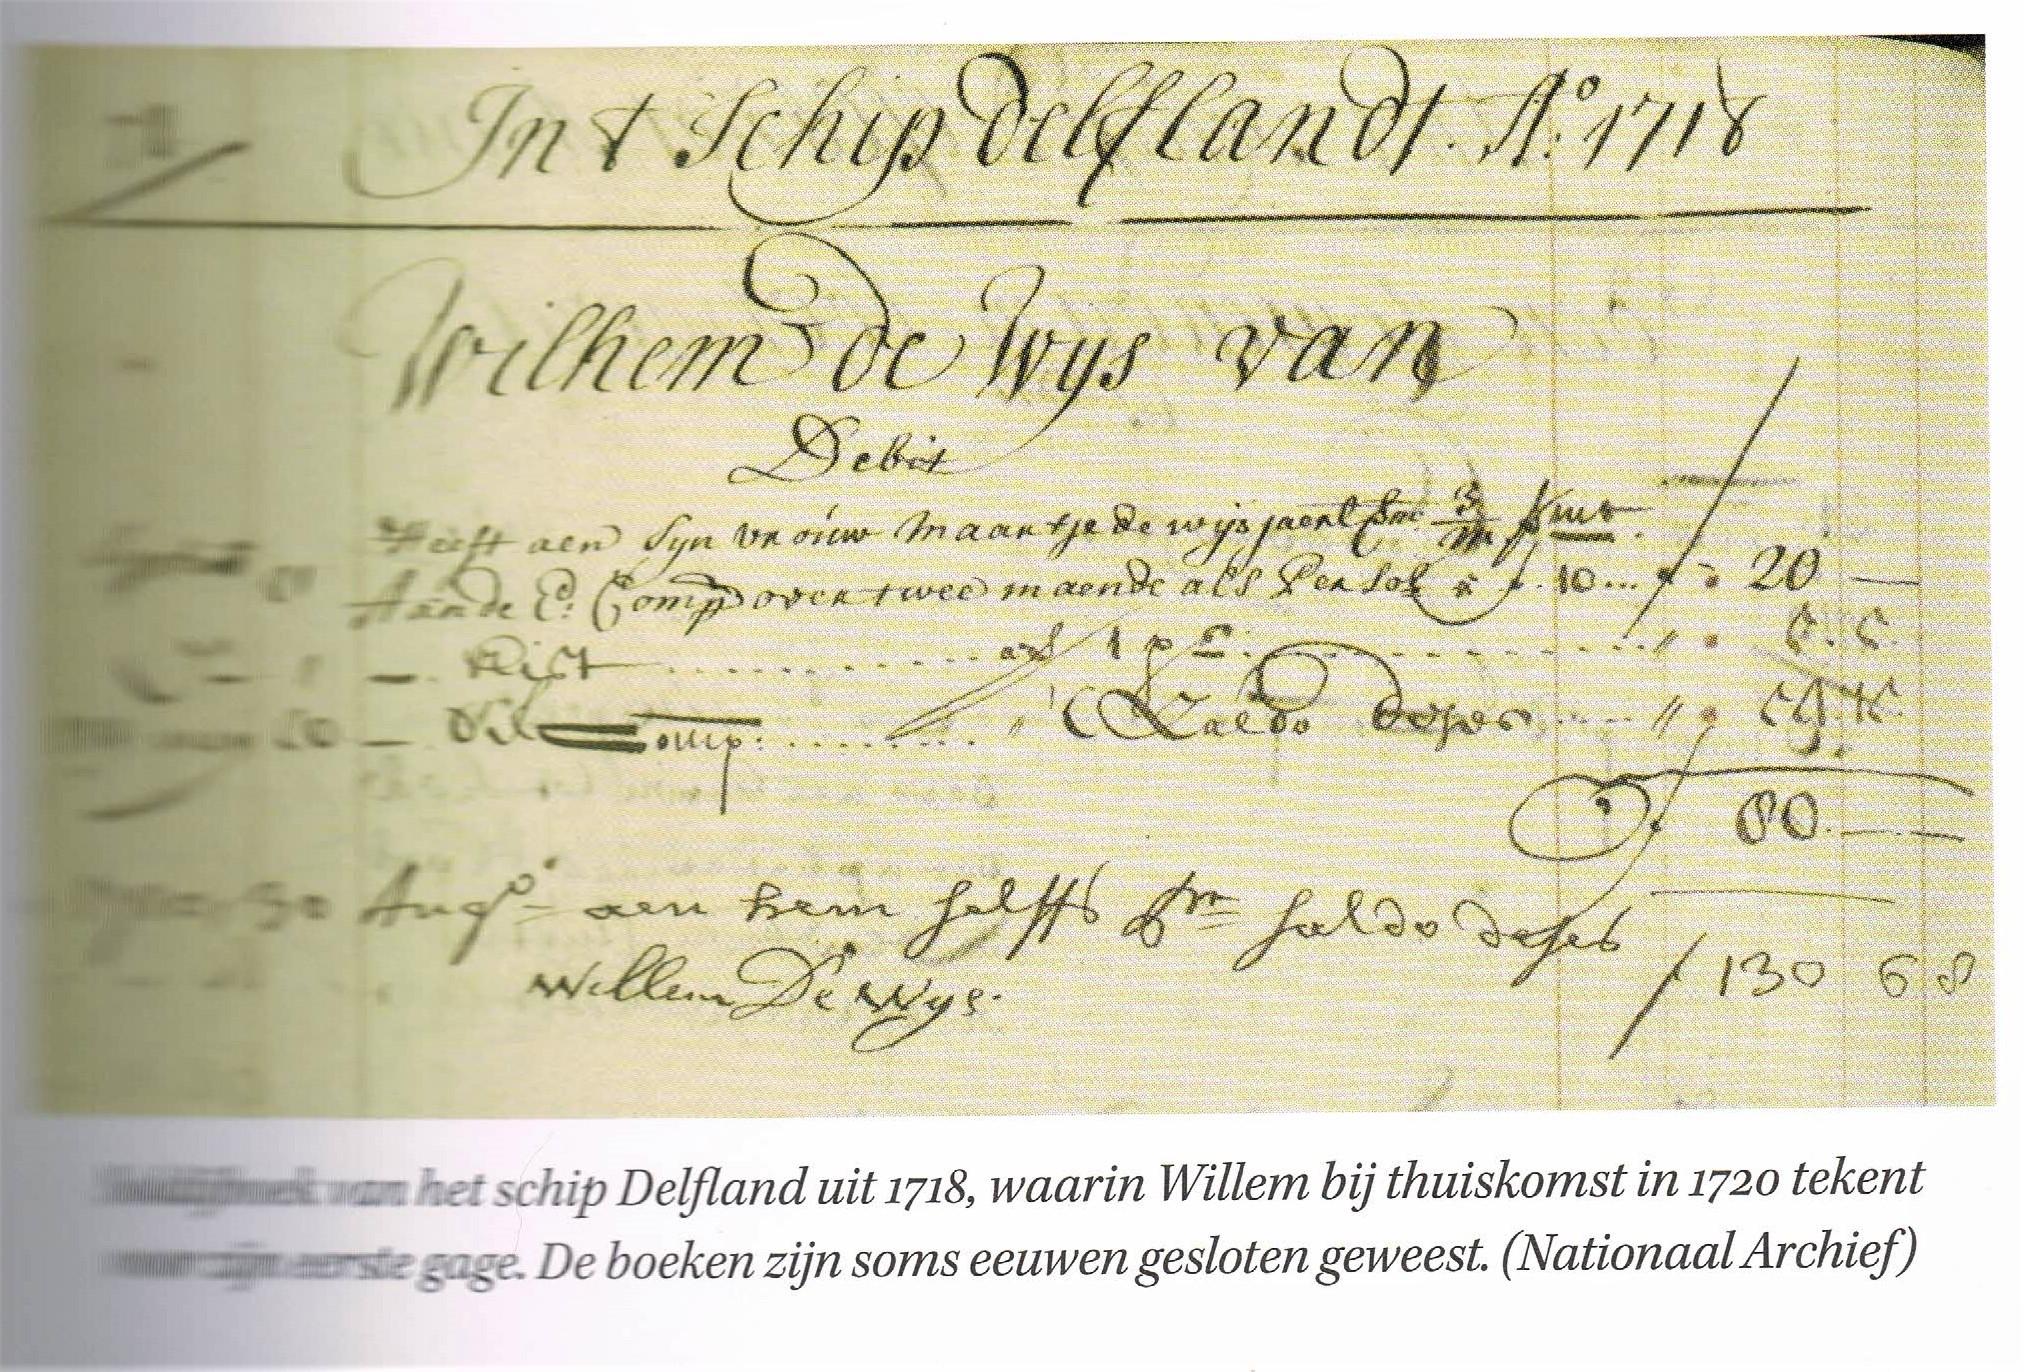 In t Schip delflandt. A:o 1718
Wilhem de Wijs van
Debit
Heeft aen Syn vrouw Maartje de wijs jaerl 3/m
Aande E: Comp over twee maende als Per Sol 10... 20 —
Kist ............
Comp: ........ Saldo deses ......
80. —
30 Aug:o aen hem selffs saldo deses
Willem De Wys. 130 6 8
van het schip Delfland uit 1718, waarin Willem bij thuiskomst in 1720 tekent
voor zijn eerste gage. De boeken zijn soms eeuwen gesloten geweest. (Nationaal Archief)